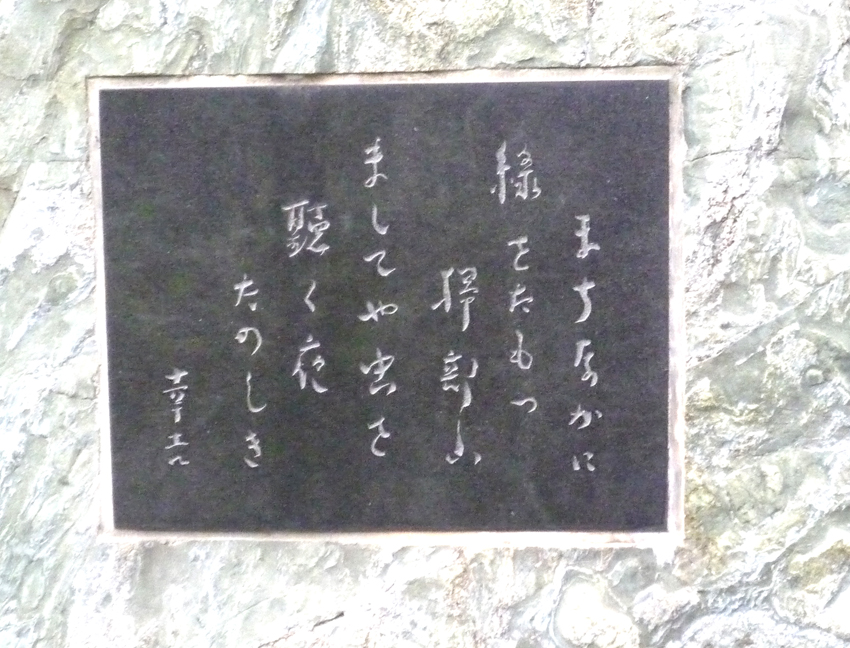 まちなかに
緑をたもつ
掃部山
ましてや虫を
聴く夜
たのしき
幸吉